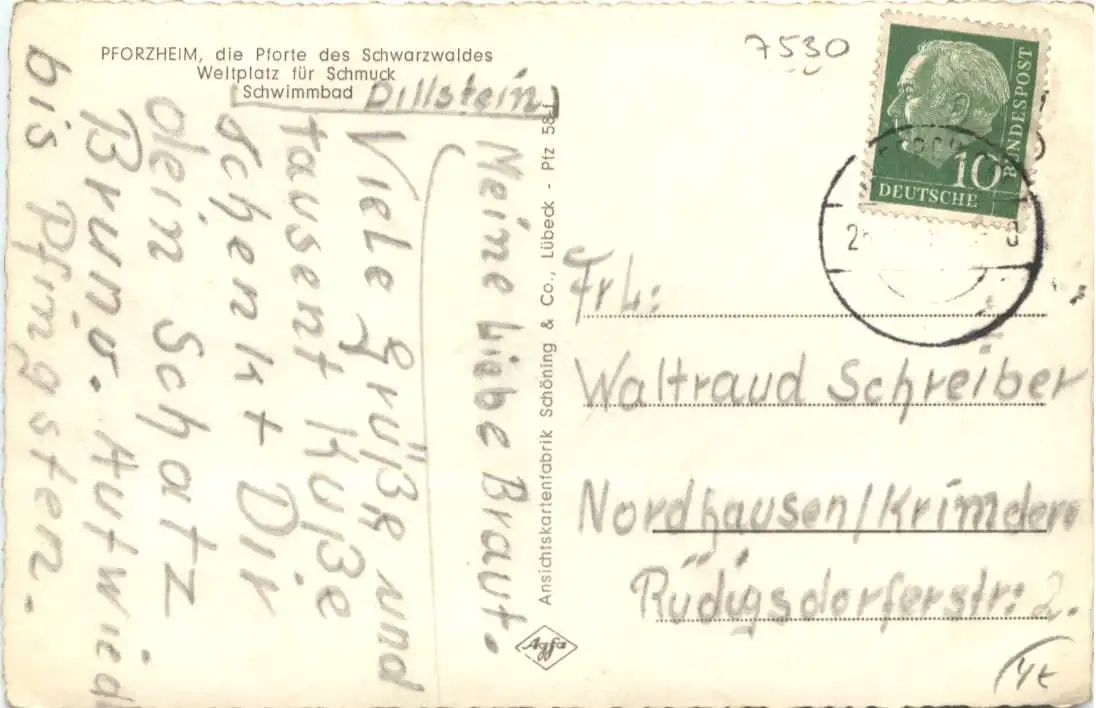 PFORZHEIM, die Pforte des Schwarzwaldes
Weltplatz für Schmuck
Schwimmbad Dillstein
7530
BUNDESPOST
10
DEUTSCHE
Meine Liebe Braut.
Viele Grüße und
tausent Kuße
schenkt Dir
dein Schatz
Bruno. Aufwied
bis Pfingsten.
Ansichtskartenfabrik Schöning & Co., Lübeck - Pfz 58 f
Agfa
FrL:
Waltraud Schreiber
Nordhausen/Krimdero
Rüdigsdorferstr: 2.